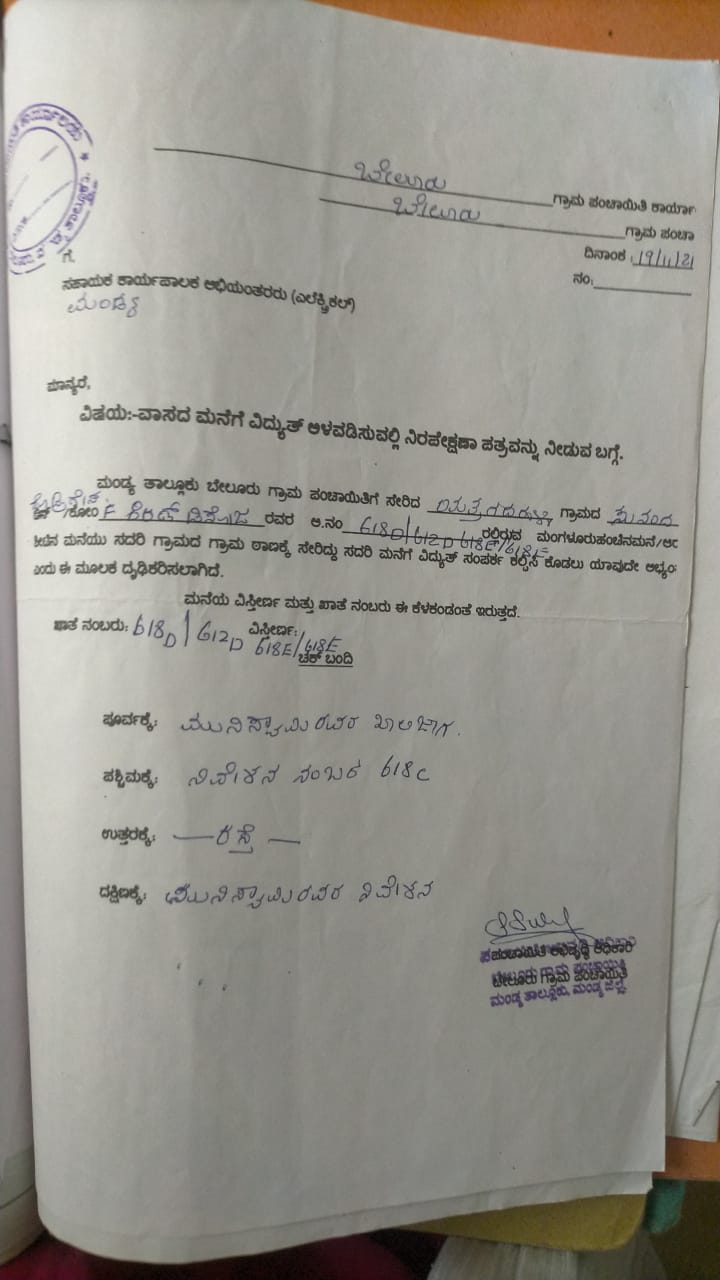 ಬೇಲೂರು ಗ್ರಾಮ ಪಂಚಾಯಿತಿ ಕಾರ್ಯಾ
ಬೇಲೂರು ಗ್ರಾಮ ಪಂಚಾ
ದಿನಾಂಕ :19/11/21
ನಂ:
ಗೆ,
ಸಹಾಯಕ ಕಾರ್ಯಪಾಲಕ ಅಭಿಯಂತರರು (ಎಲೆಕ್ಟ್ರಿಕಲ್)
ಮಂಡ್ಯ
ಮಾನ್ಯರೆ,
ವಿಷಯ:-ವಾಸದ ಮನೆಗೆ ವಿದ್ಯುತ್ ಅಳವಡಿಸುವಲ್ಲಿ ನಿರಪೇಕ್ಷಣಾ ಪತ್ರವನ್ನು ನೀಡುವ ಬಗ್ಗೆ.
ಮಂಡ್ಯ ತಾಲ್ಲೂಕು ಬೇಲೂರು ಗ್ರಾಮ ಪಂಚಾಯಿತಿಗೆ ಸೇರಿದ ಗ್ರಾಮದ
/ಕೋಂ ರವರ ಅ.ನಂ 618D/612D 618E/618E ರಲ್ಲಿರುವ ಮಂಗಳೂರುಹಂಚಿನಮನೆ/ಆರ
ಸಿಸಿನ ಮನೆಯು ಸದರಿ ಗ್ರಾಮದ ಗ್ರಾಮ ಠಾಣಕ್ಕೆ ಸೇರಿದ್ದು ಸದರಿ ಮನೆಗೆ ವಿದ್ಯುತ್ ಸಂಪರ್ಕ ಕಲ್ಪಿಸಿ ಕೊಡಲು ಯಾವುದೇ ಅಭ್ಯಂ
ಎಂದು ಈ ಮೂಲಕ ದೃಢಿಕರಿಸಲಾಗಿದೆ.
ಮನೆಯ ವಿಸ್ತೀರ್ಣ ಮತ್ತು ಖಾತೆ ನಂಬರು ಈ ಕೆಳಕಂಡಂತೆ ಇರುತ್ತದೆ.
ಖಾತೆ ನಂಬರು: 618D/612D 618E/618E ವಿಸ್ತೀರ್ಣ:
ಚೆಕ್ ಬಂದಿ
ಪೂರ್ವಕ್ಕೆ: ಮುನಿಸ್ವಾಮಿರವರ ಖಾಲಿಜಾಗ.
ಪಶ್ಚಿಮಕ್ಕೆ: ನಿವೇಶನ ನಂಬರ 618C
ಉತ್ತರಕ್ಕೆ: — ರಸ್ತೆ —
ದಕ್ಷಿಣಕ್ಕೆ: ಮುನಿಸ್ವಾಮಿರವರ ನಿವೇಶನ
ಪಂಚಾಯಿತಿ ಅಭಿವೃದ್ಧಿ ಅಧಿಕಾರಿ
ಬೇಲೂರು ಗ್ರಾಮ ಪಂಚಾಯಿತಿ
ಮಂಡ್ಯ ತಾಲ್ಲೂಕು, ಮಂಡ್ಯ ಜಿಲ್ಲೆ